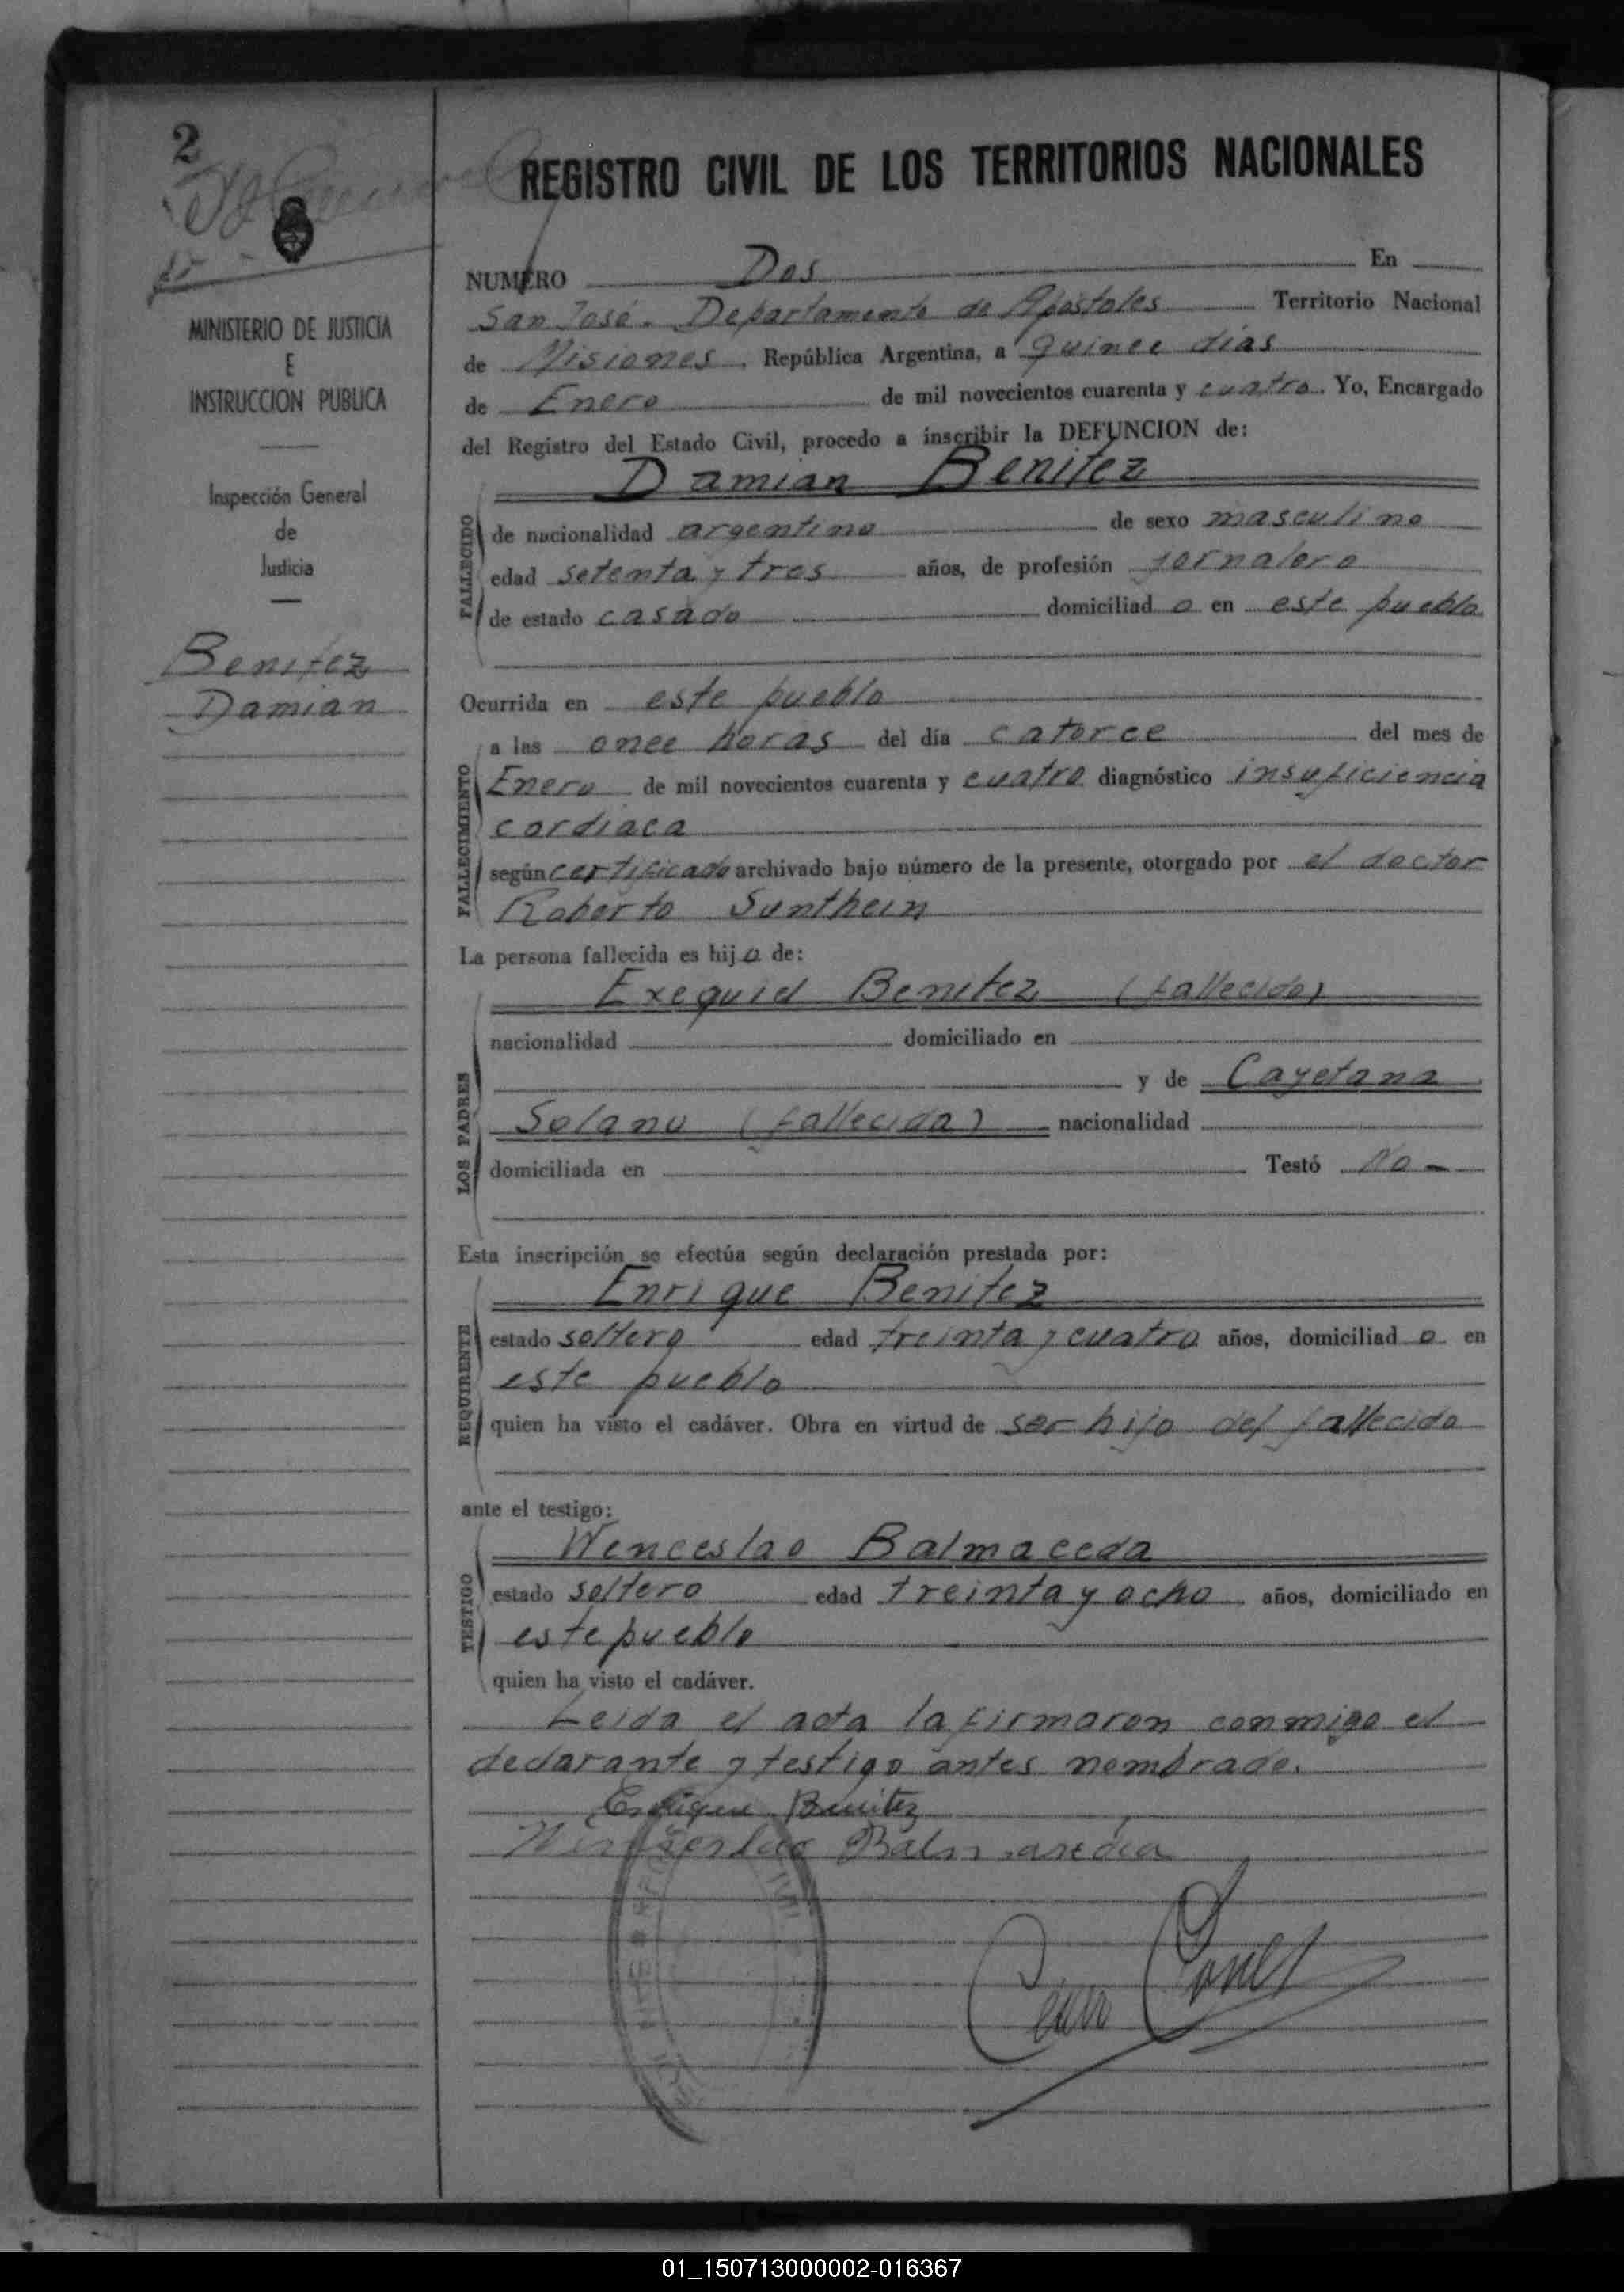 2
MINISTERIO DE JUSTICIA
E
INSTRUCCION PUBLICA
Inspección General
de
Justicia
Benitez
Damian
REGISTRO CIVIL DE LOS TERRITORIOS NACIONALES
NUMERO Dos En
San José. Departamento de Apóstoles Territorio Nacional
de Misiones, República Argentina, a quince días
de Enero de mil novecientos cuarenta y cuatro. Yo, Encargado
del Registro del Estado Civil, procedo a inscribir la DEFUNCION de:
Damian Benitez
FALLECIDO
de nacionalidad argentino de sexo masculino
edad setenta y tres años, de profesión jornalero
de estado casado domiciliad o en este pueblo
Ocurrida en este pueblo
FALLECIMIENTO
a las once horas del día catorce del mes de
Enero de mil novecientos cuarenta y cuatro diagnóstico insuficiencia
cardiaca
según certificado archivado bajo número de la presente, otorgado por el doctor
Roberto Sunthein
La persona fallecida es hijo de:
LOS PADRES
Exequiel Benitez (fallecido)
nacionalidad domiciliado en
y de Cayetana
Solano (fallecida) nacionalidad
domiciliada en Testó No
Esta inscripción se efectúa según declaración prestada por:
REQUIRENTE
Enrique Benitez
estado soltero edad treinta y cuatro años, domiciliad o en
este pueblo
quien ha visto el cadáver. Obra en virtud de ser hijo del fallecido
ante el testigo:
TESTIGO
Wenceslao Balmaceda
estado soltero edad treinta y ocho años, domiciliado en
este pueblo
quien ha visto el cadáver.
Leida el acta la firmaron conmigo el
declarante y testigo antes nombrado.
Enrique Benitez
01_150713000002-016367